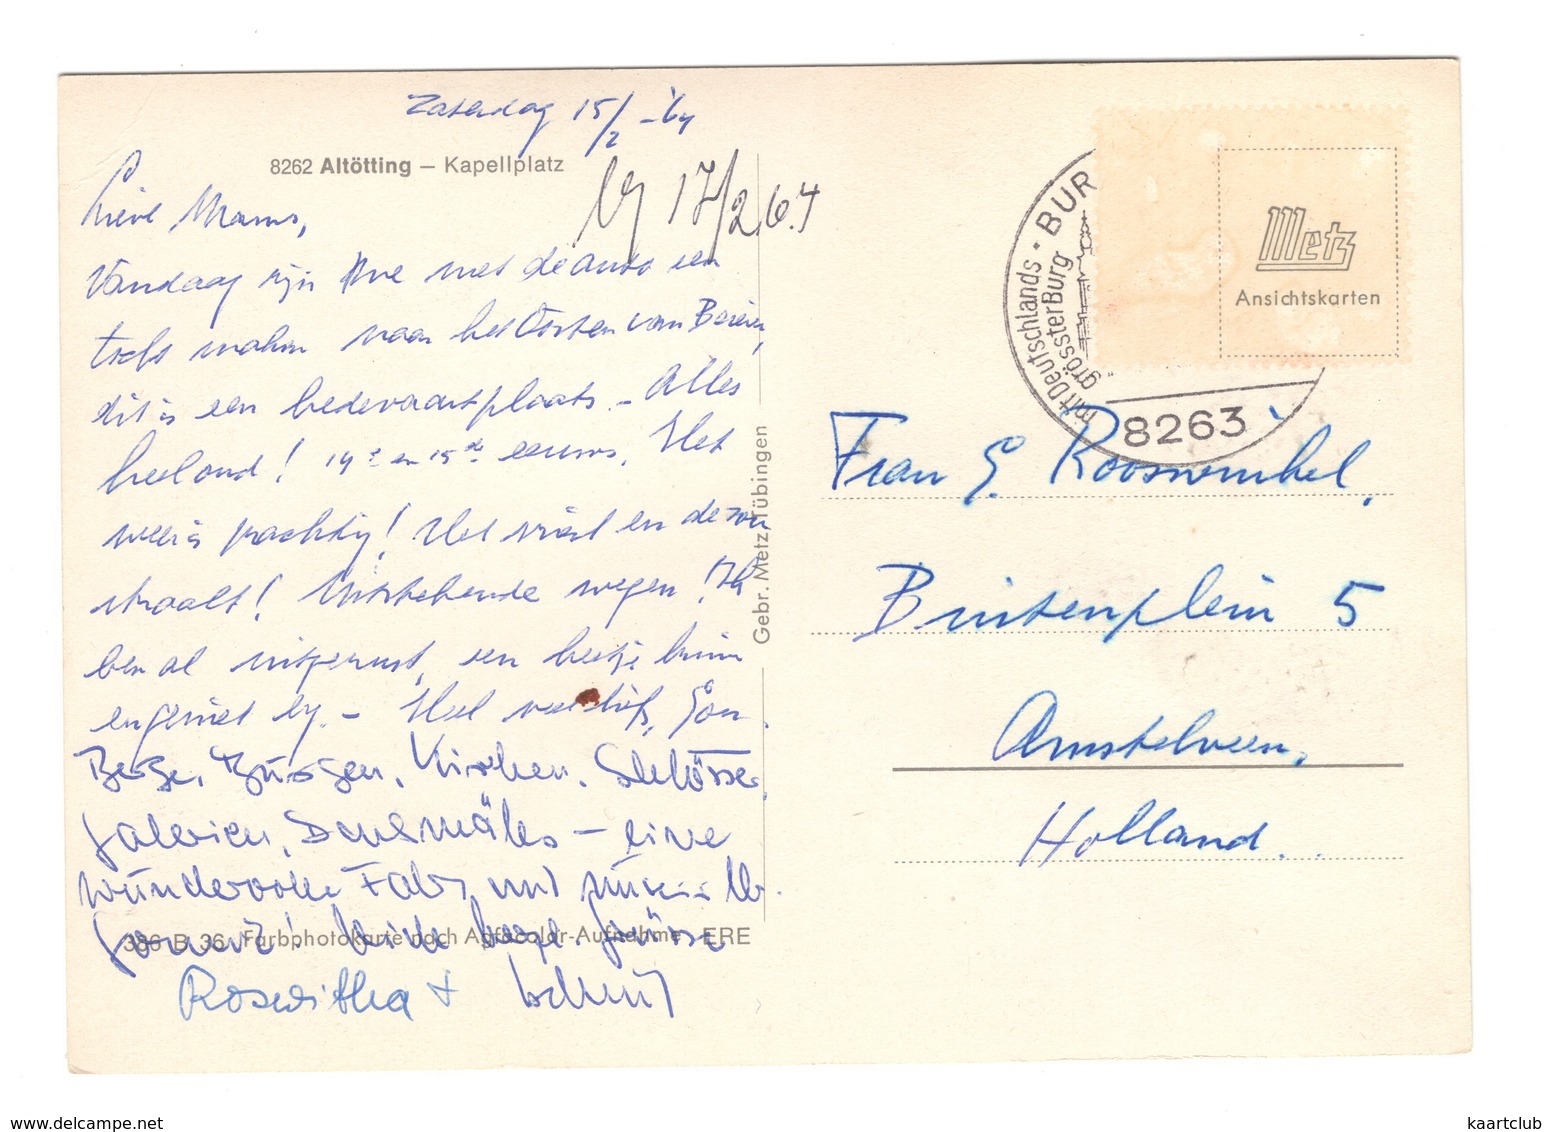 Zaterdag 15/2 - '64
8262 Altötting – Kapellplatz
17/2 64
Lieve Mams,
Vandaag zijn we met de auto een
tocht naar het Oosten van Beieren,
dit is een bedevaartplaats. - Alles
heel oud! 14e en 15de eeuws. Het
weer is prachtig! Het vriest en de zon
straalt! Uitstekende wegen! Ik
ben al uitgerust, een beetje bruin
en geniet erg. - Heel veel liefs,
Berge, Burgen, Kirchen, Schlösser,
Galerien, Denkmäler – eine
wundervolle Fahrt und
Grüsse
Roswitha +
Gebr. Metz, Tübingen
386 B 36 Farbphotokarte nach Agfacolor-Aufnahme ERE
BUR
mit Deutschlands
grösster Burg
8263
Metz
Ansichtskarten
Frau E. Rooswinkel,
Buitenplein 5
Amstelveen,
Holland..
www.delcampe.net
kaartclub